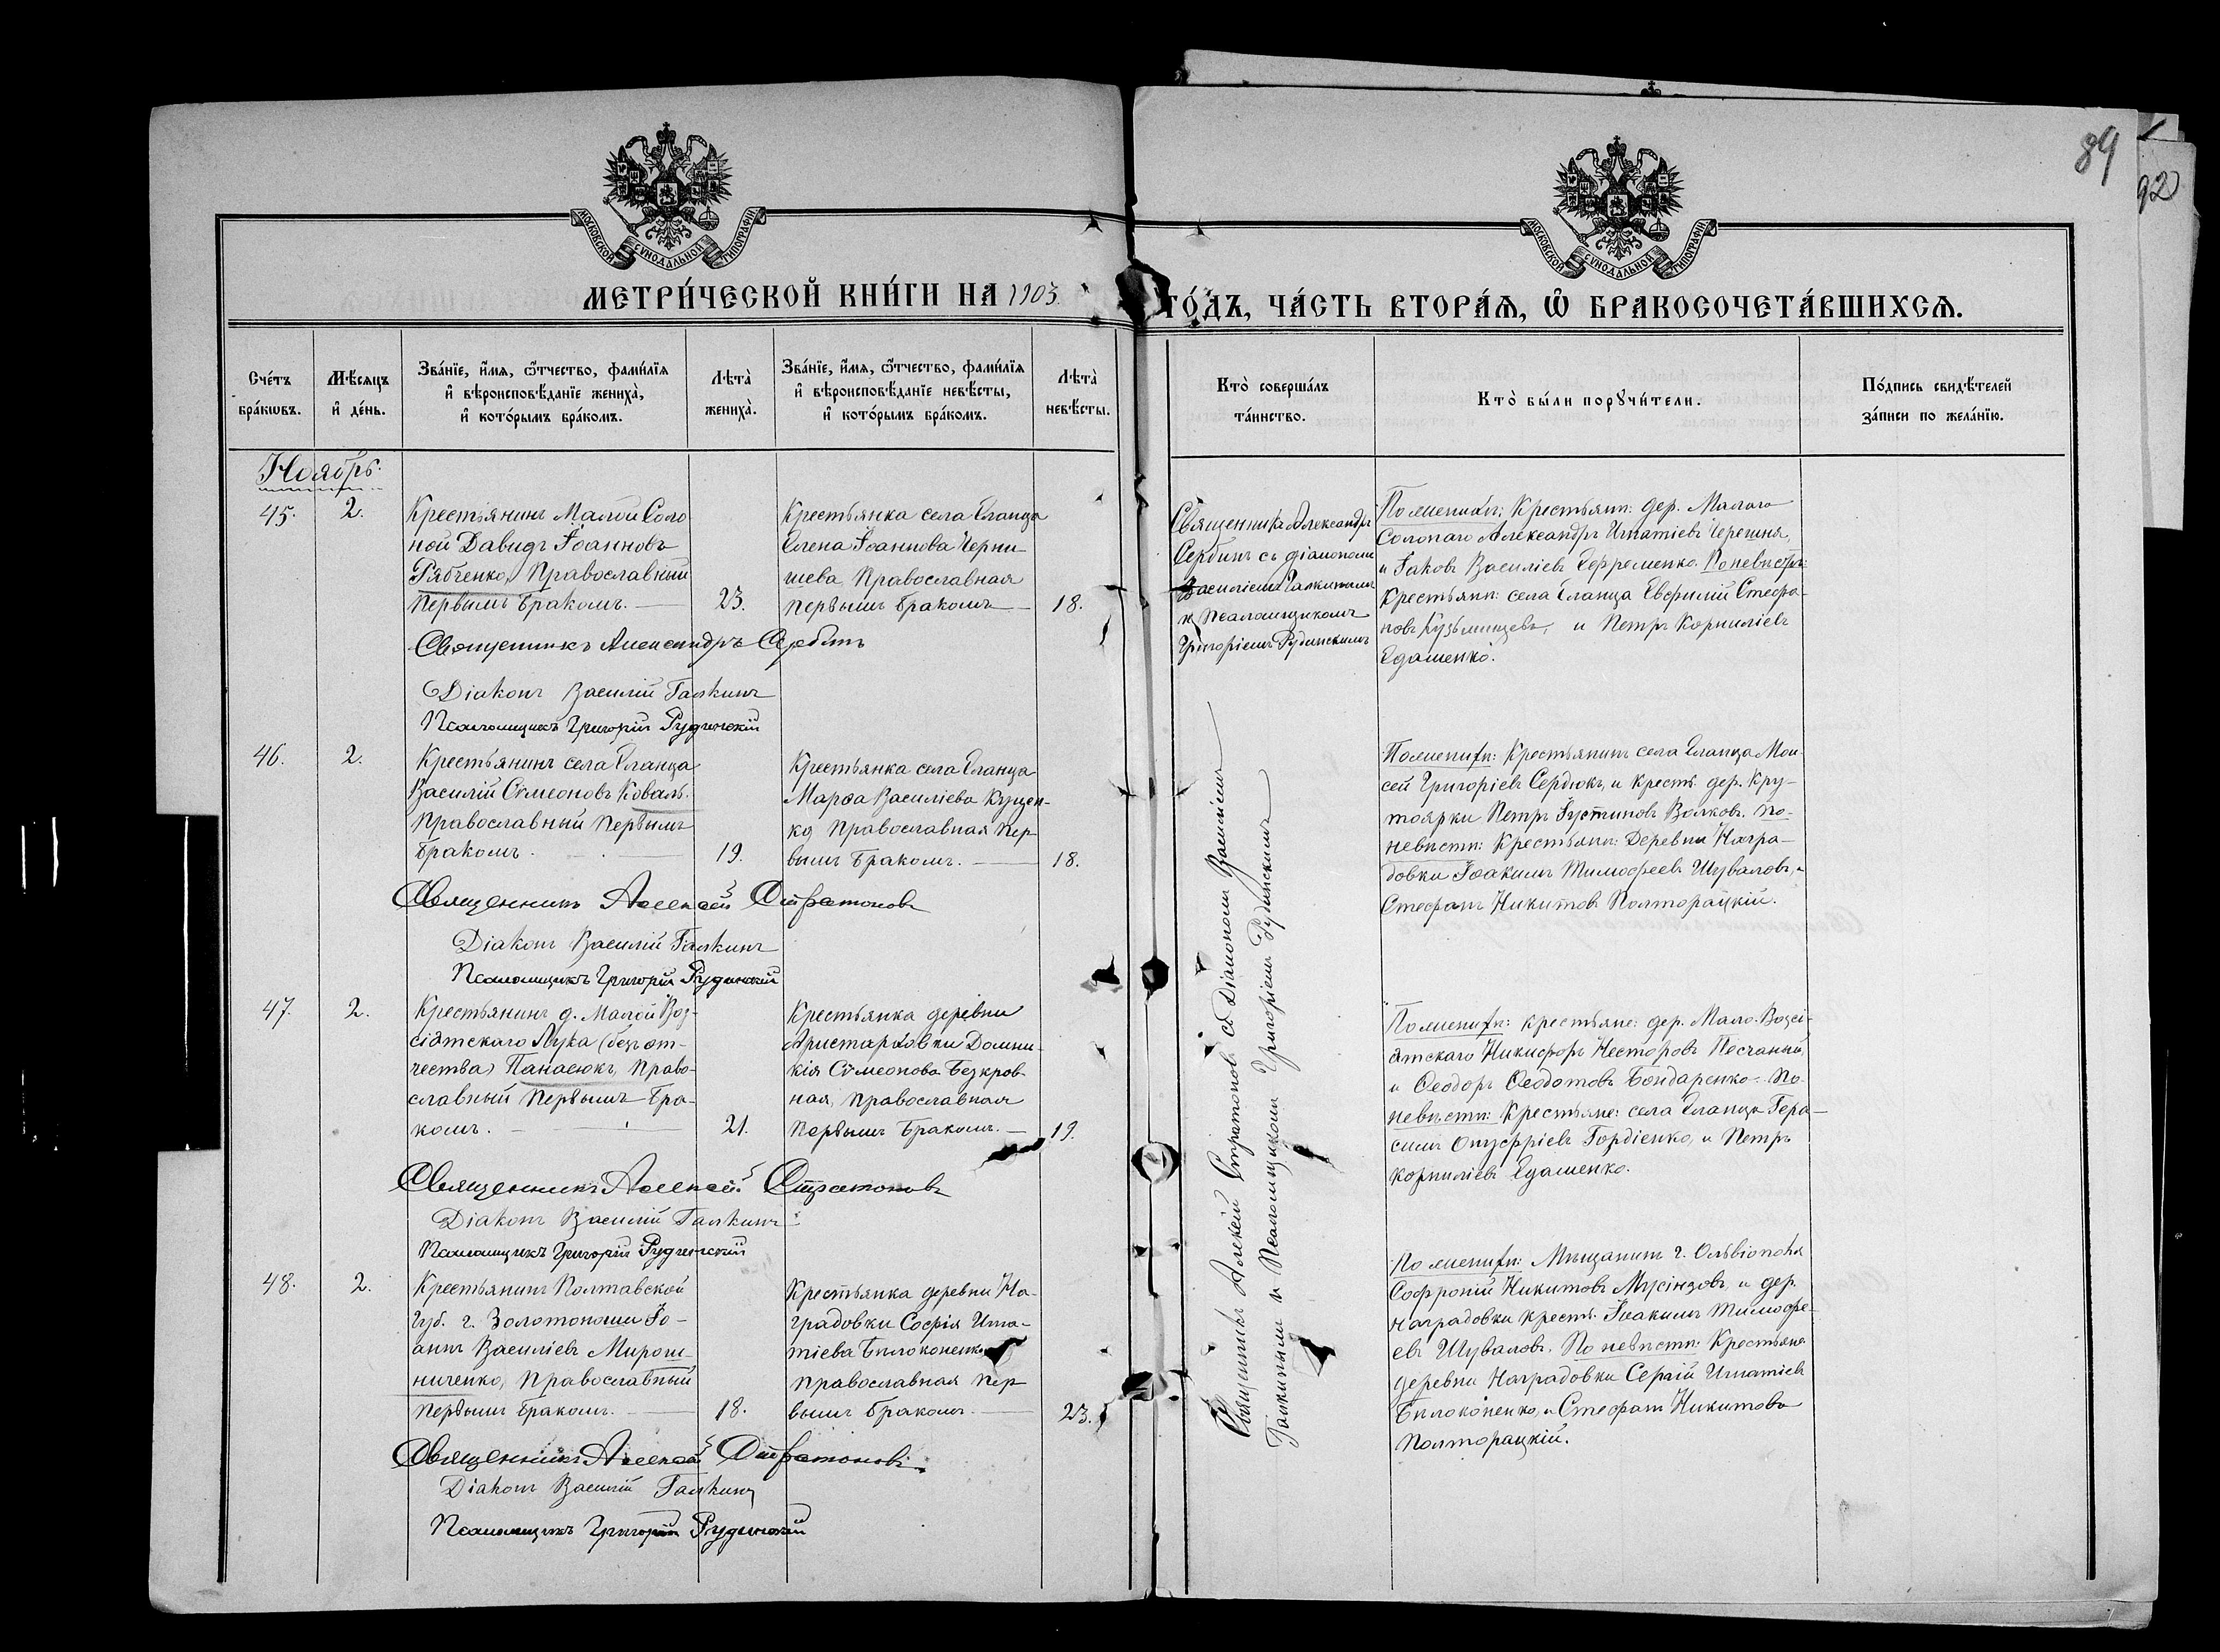 89
92
МОСКОВСКОЙ СѴНОДАЛЬНОЙ ТИПОГРАФІИ
МОСКОВСКОЙ СѴНОДАЛЬНОЙ ТИПОГРАФІИ
МЕТРИ́ЧЕСКОЙ КНИ́ГИ НА 1903
ГО́ДЪ, ЧА́СТЬ ВТОРА́Я, Ѽ БРАКОСОЧЕТА́ВШИХСѦ.
Сче́тъ
бра́кѡвъ.
Мѣ́сяцъ
и҆ де́нь.
Зва́нїе, и҆́мя, ѻ҆́тчество, фами́лїя
и҆ вѣроисповѣ́данїе жениха̀,
и҆ кото́рымъ бра́комъ.
Лѣ́та̀
жениха̀.
Зва́нїе, и҆́мя, ѻ҆́тчество, фами́лїя
и҆ вѣроисповѣ́данїе невѣ́сты,
и҆ кото́рымъ бра́комъ.
Лѣ́та̀
невѣ́сты.
Кто̀ соверша́лъ
та́инство.
Кто̀ бы́ли порꙋчи́тели.
По́дпись свидѣ́телей
за́писи по жела́нїю.
Ноябрь.
45.
2.
Крестьянинъ Малой Соло
ной Давидъ Іоанновъ
Рябченко, Православный
первымъ бракомъ.
23.
Крестьянка села Еланца
Елена Іоаннова Черни
шева, Православная
первымъ бракомъ
18.
Священникъ Александръ
Сербинъ съ діакономъ
Василіемъ Галкинымъ
и Псаломщикомъ
Григоріемъ Рудинскимъ
По женихѣ: Крестьян: дер. Малого
Солонаго Александръ Игнатіевъ Черешня,
и Іаковъ Василіевъ Ефременко. По невѣстѣ:
Крестьян: села Еланца Евфимій Стефа-
новъ Кузьминцевъ, и Петръ Корниліевъ
Едашенко.
Священникъ Александръ Сербинъ
Діаконъ Василій Галкинъ
Псаломщикъ Григорій Рудинскій
46.
2.
Крестьянинъ села Еланца
Василій Сѵмеоновъ Коваль.
Православный первымъ
бракомъ.
19.
Крестьянка села Еланца
Марѳа Василіева Куцен-
ко Православная пер
вымъ бракомъ.
18.
По женихѣ: Крестьянинъ села Еланца Мои
сей Григоріевъ Сердюкъ, и крест. дер. Кру-
тоярки Петръ Іустиновъ Волковъ. По-
невѣстѣ: Крестьян: Деревни Награ-
довки Іоакимъ Тимофеевъ Шуваловъ, и
Стефанъ Никитовъ Полторацкій.
Священникъ Алексѣй Стратоновъ
Діаконъ Василій Галкинъ
Псаломщикъ Григорій Рудинскій
47.
2.
Крестьянинъ д. Малой Воз-
сіятскаго Лука (безъ от-
чества) Панасюкъ, Право-
славный первымъ бра-
комъ.
21.
Крестьянка деревни
Аристарховки Домни-
кія Сѵмеонова Безкров
ная, православная
первымъ бракомъ.
19.
По женихѣ: крестьяне: дер. Мало-Возсі-
ятскаго Никифоръ Несторовъ Песчаный,
и Ѳеодоръ Ѳеодотовъ Бондаренко. По-
невѣстѣ: Крестьяне: села Еланца Гера-
симъ Онуфріевъ Гордіенко, и Петръ
Корниліевъ Едашенко.
Священникъ Алексѣй Стратоновъ
Діаконъ Василій Галкинъ
Псаломщикъ Григорій Рудинскій
48.
2.
Крестьянинъ Полтавской
Губ. г. Золотоноши Іо-
аннъ Василіевъ Мирош-
ниченко, Православный
первымъ бракомъ.
18.
Крестьянка деревни На-
градовки Софія Игна-
тіева Бѣлоконенко
православная пер
вымъ бракомъ.
23.
По женихѣ: Мѣщанинъ г. Ольвіополя
Софроній Никитовъ и дер.
Наградовки крест. Іоакимъ Тимофе-
евъ Шуваловъ. По невѣстѣ: Крестьяне
деревни Наградовки Сергій Игнатіевъ
Бѣлоконенко, и Стефанъ Никитовъ
Полторацкій.
Священникъ Алексѣй Стратоновъ
Діаконъ Василій Галкинъ
Псаломщикъ Григорій Рудинскій
Священникъ Алексѣй Стратоновъ съ Діакономъ Василіемъ
Галкинымъ и Псаломщикомъ Григоріемъ Рудинскимъ